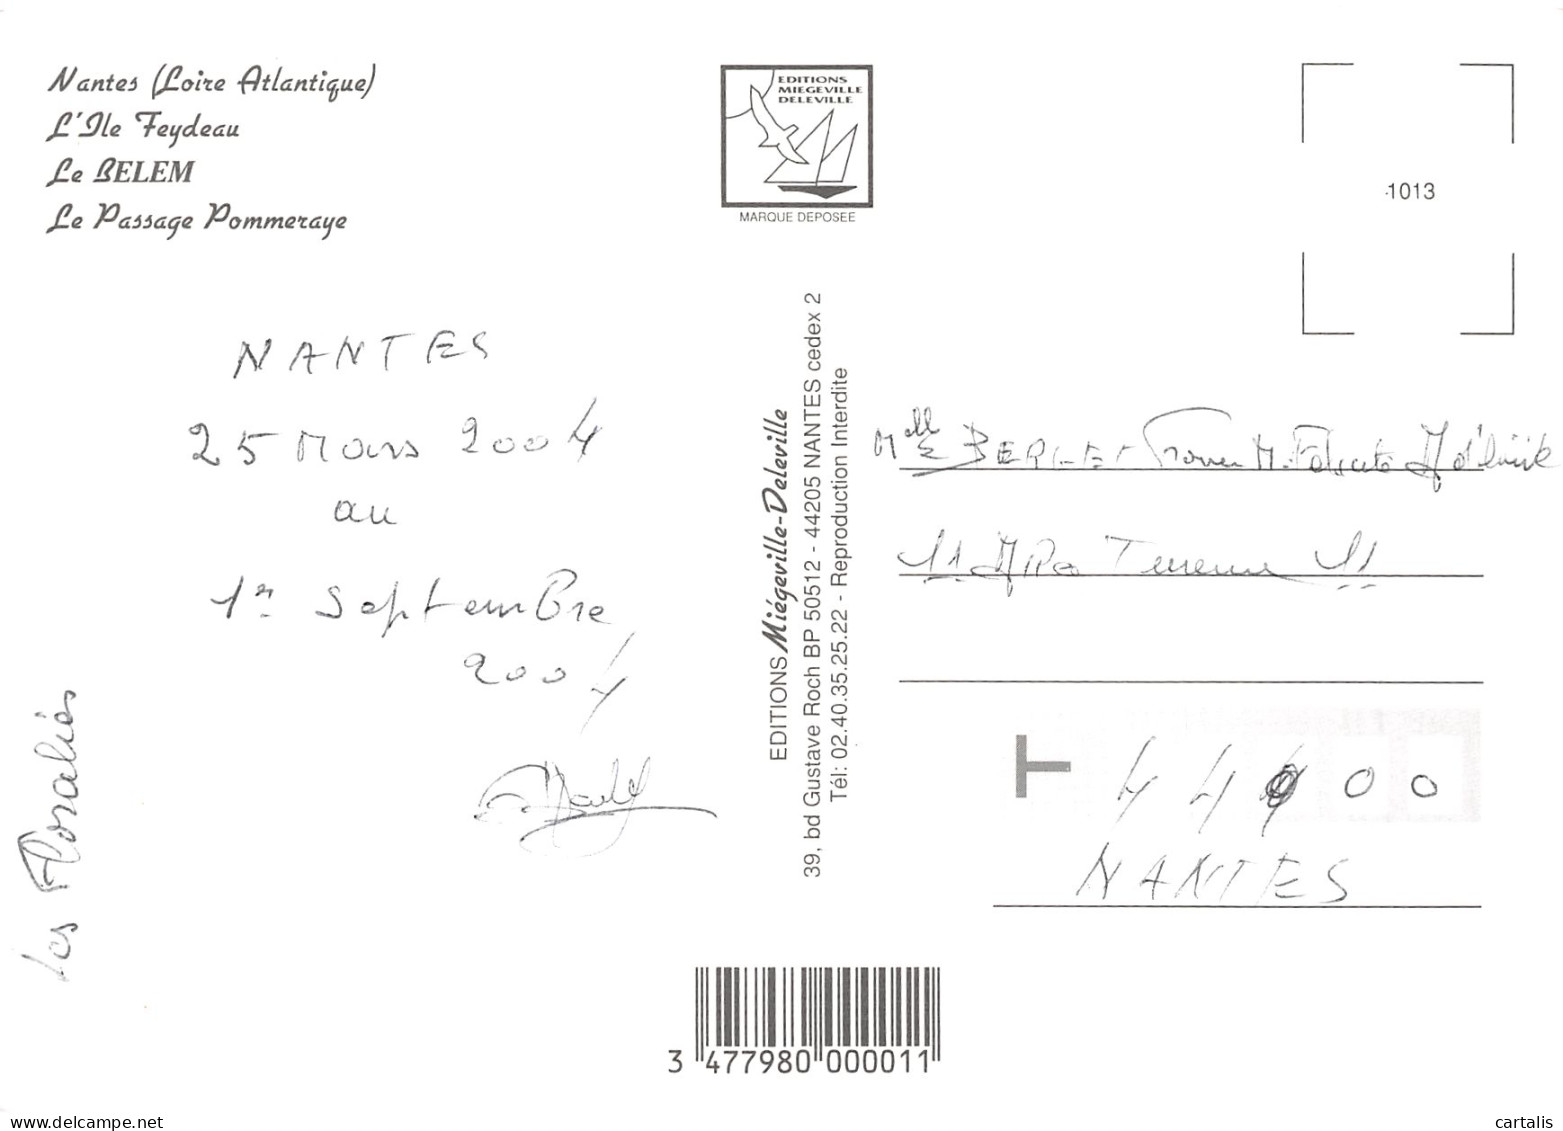 Nantes (Loire Atlantique)
L'Ile Feydeau
Le BELEM
Le Passage Pommeraye
EDITIONS
MIEGEVILLE
DELEVILLE
MARQUE DEPOSEE
1013
NANTES
25 Mars 2004
au
1er Septembre
2004
Les Floralies
EDITIONS Miégeville-Deleville
39, bd Gustave Roch BP 50512 - 44205 NANTES cedex 2
Tél: 02.40.35.25.22 - Reproduction Interdite
Melle
11
T
44000
NANTES
3 477980 000011
www.delcampe.net
cartalis